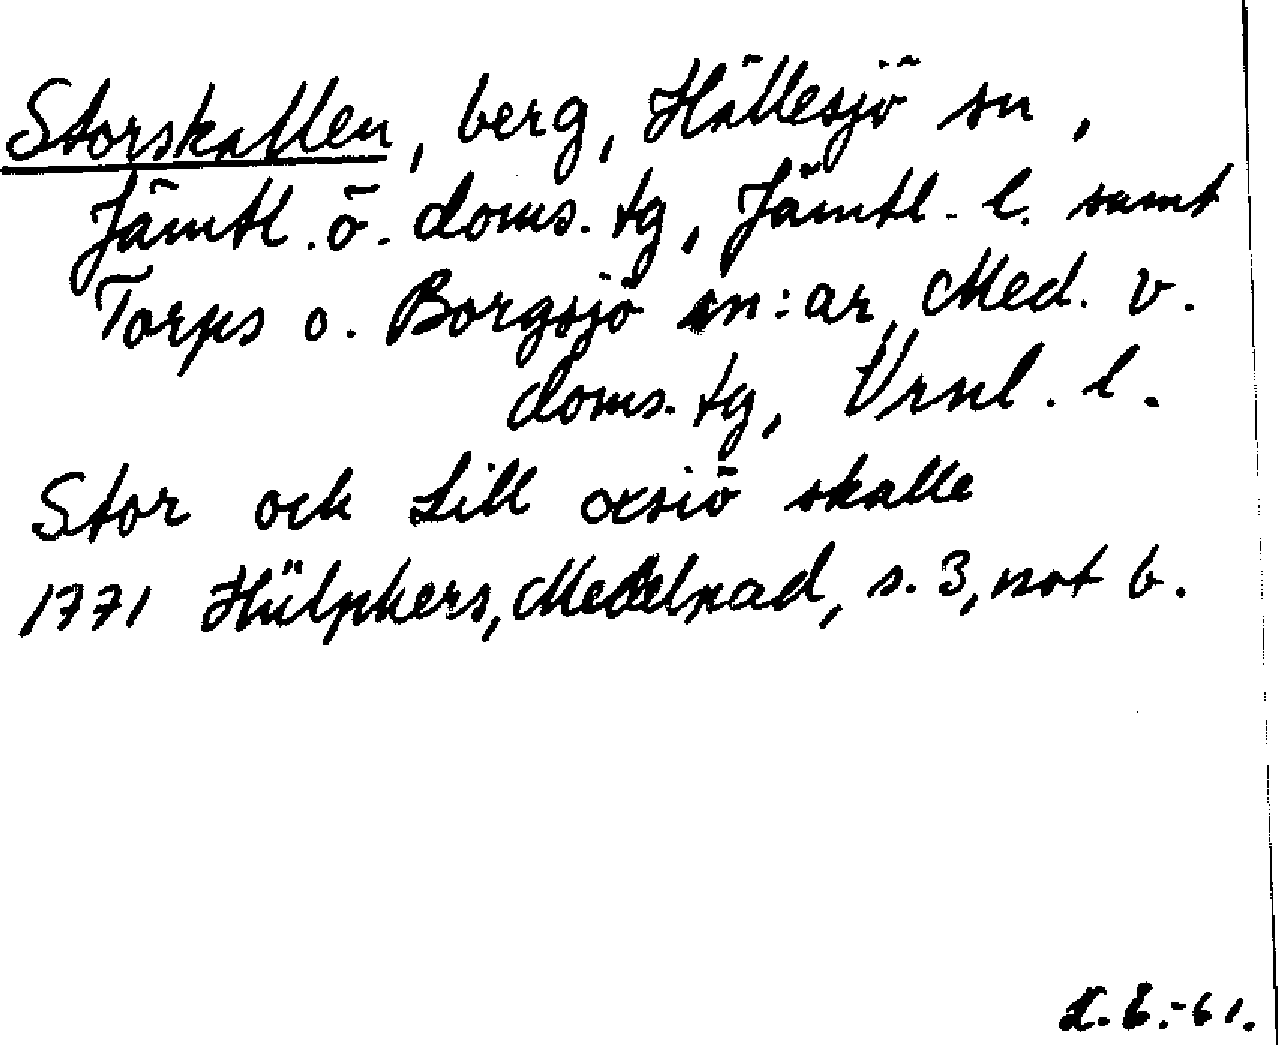 Storskallen, berg, Hällesjö sn,
Jämtl. ö. doms. tg, Jämtl. l. samt
Torps o. Borgsjö sn:ar, Med. v.
doms. tg, Vrnl. l.
Stor och Lill oxsiö skalle
1771 Hülphers, Medelpad, s. 3, not b.
-61.